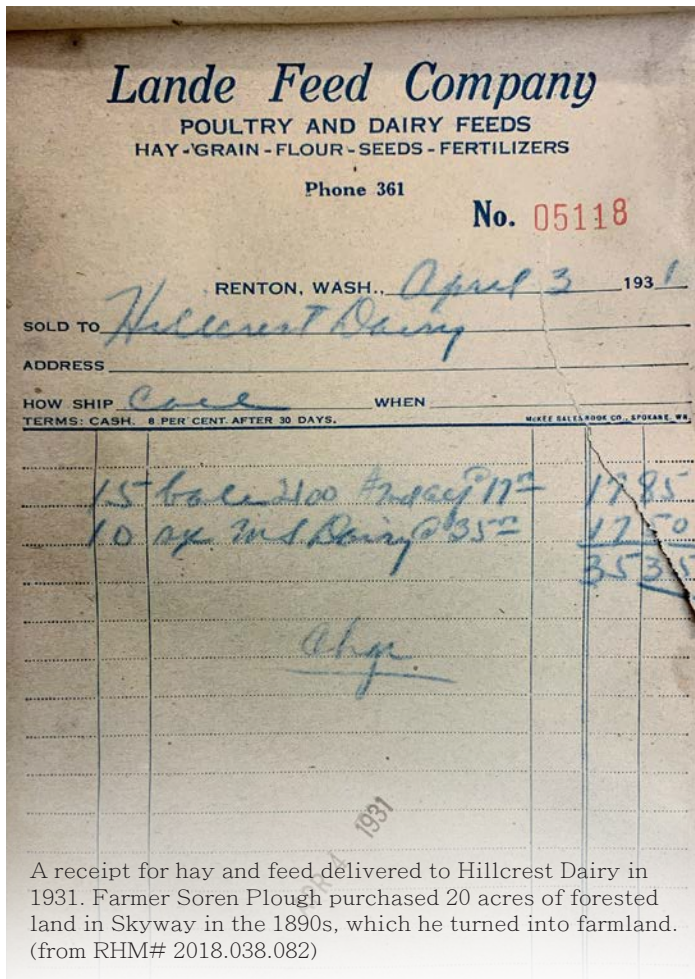 Lande Feed Company
POULTRY AND DAIRY FEEDS
HAY - GRAIN - FLOUR - SEEDS - FERTILIZERS
Phone 361
No. 05118
RENTON, WASH., April 3 1931
SOLD TO Hillcrest Dairy
ADDRESS
HOW SHIP Call WHEN
TERMS: CASH. 8 PER CENT. AFTER 30 DAYS. McKEE SALESBOOK CO., SPOKANE, WN.
15 bale 2100 @ 17 17 85
10 sx Dairy @ 35 17 50
35 35
Chg
APR 4 1931
A receipt for hay and feed delivered to Hillcrest Dairy in
1931. Farmer Soren Plough purchased 20 acres of forested
land in Skyway in the 1890s, which he turned into farmland.
(from RHM# 2018.038.082)